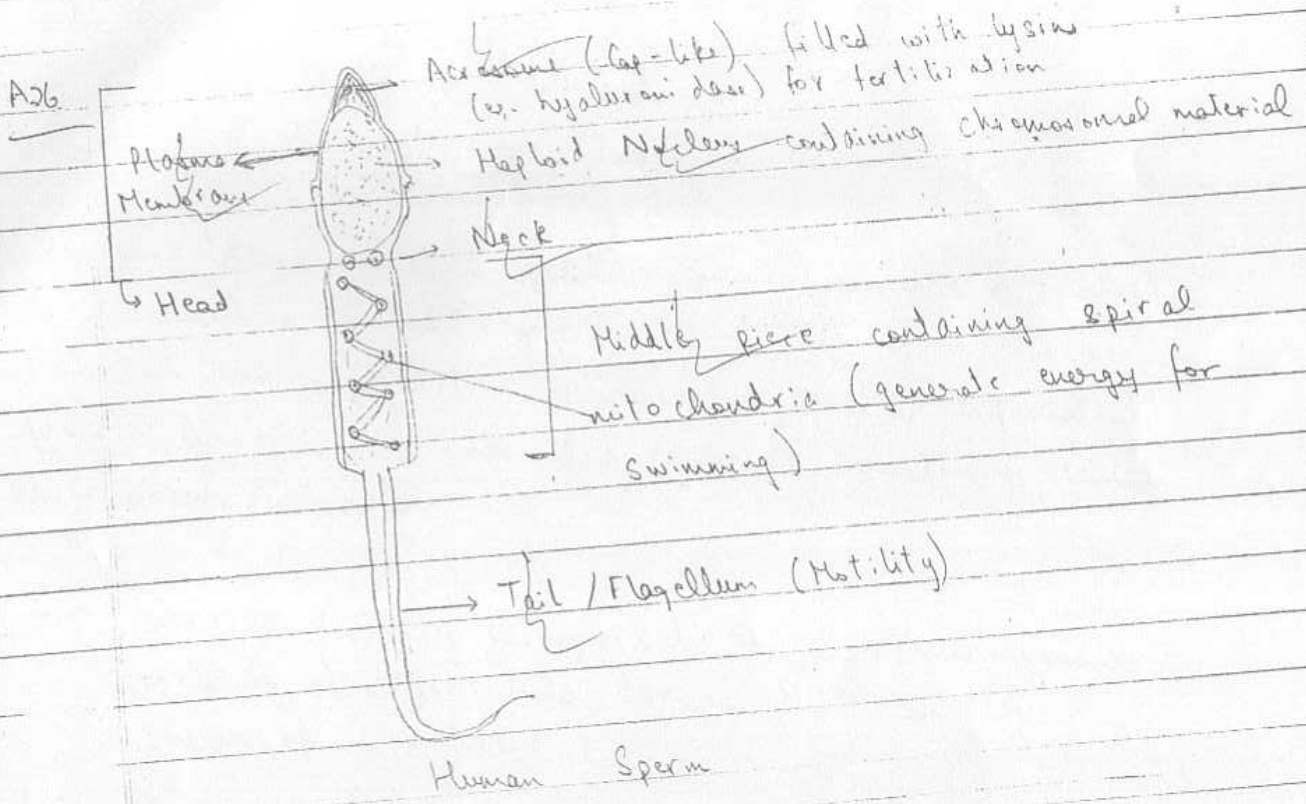 A26
Acrosome (Cap-like) filled with lysins
(eg. hyaluronidase) for fertilisation
Plasma
Membrane
Haploid Nucleus containing chromosomal material
Neck
Head
Middle piece containing spiral
mitochondria (generate energy for
swimming)
Tail / Flagellum (Motility)
Human Sperm